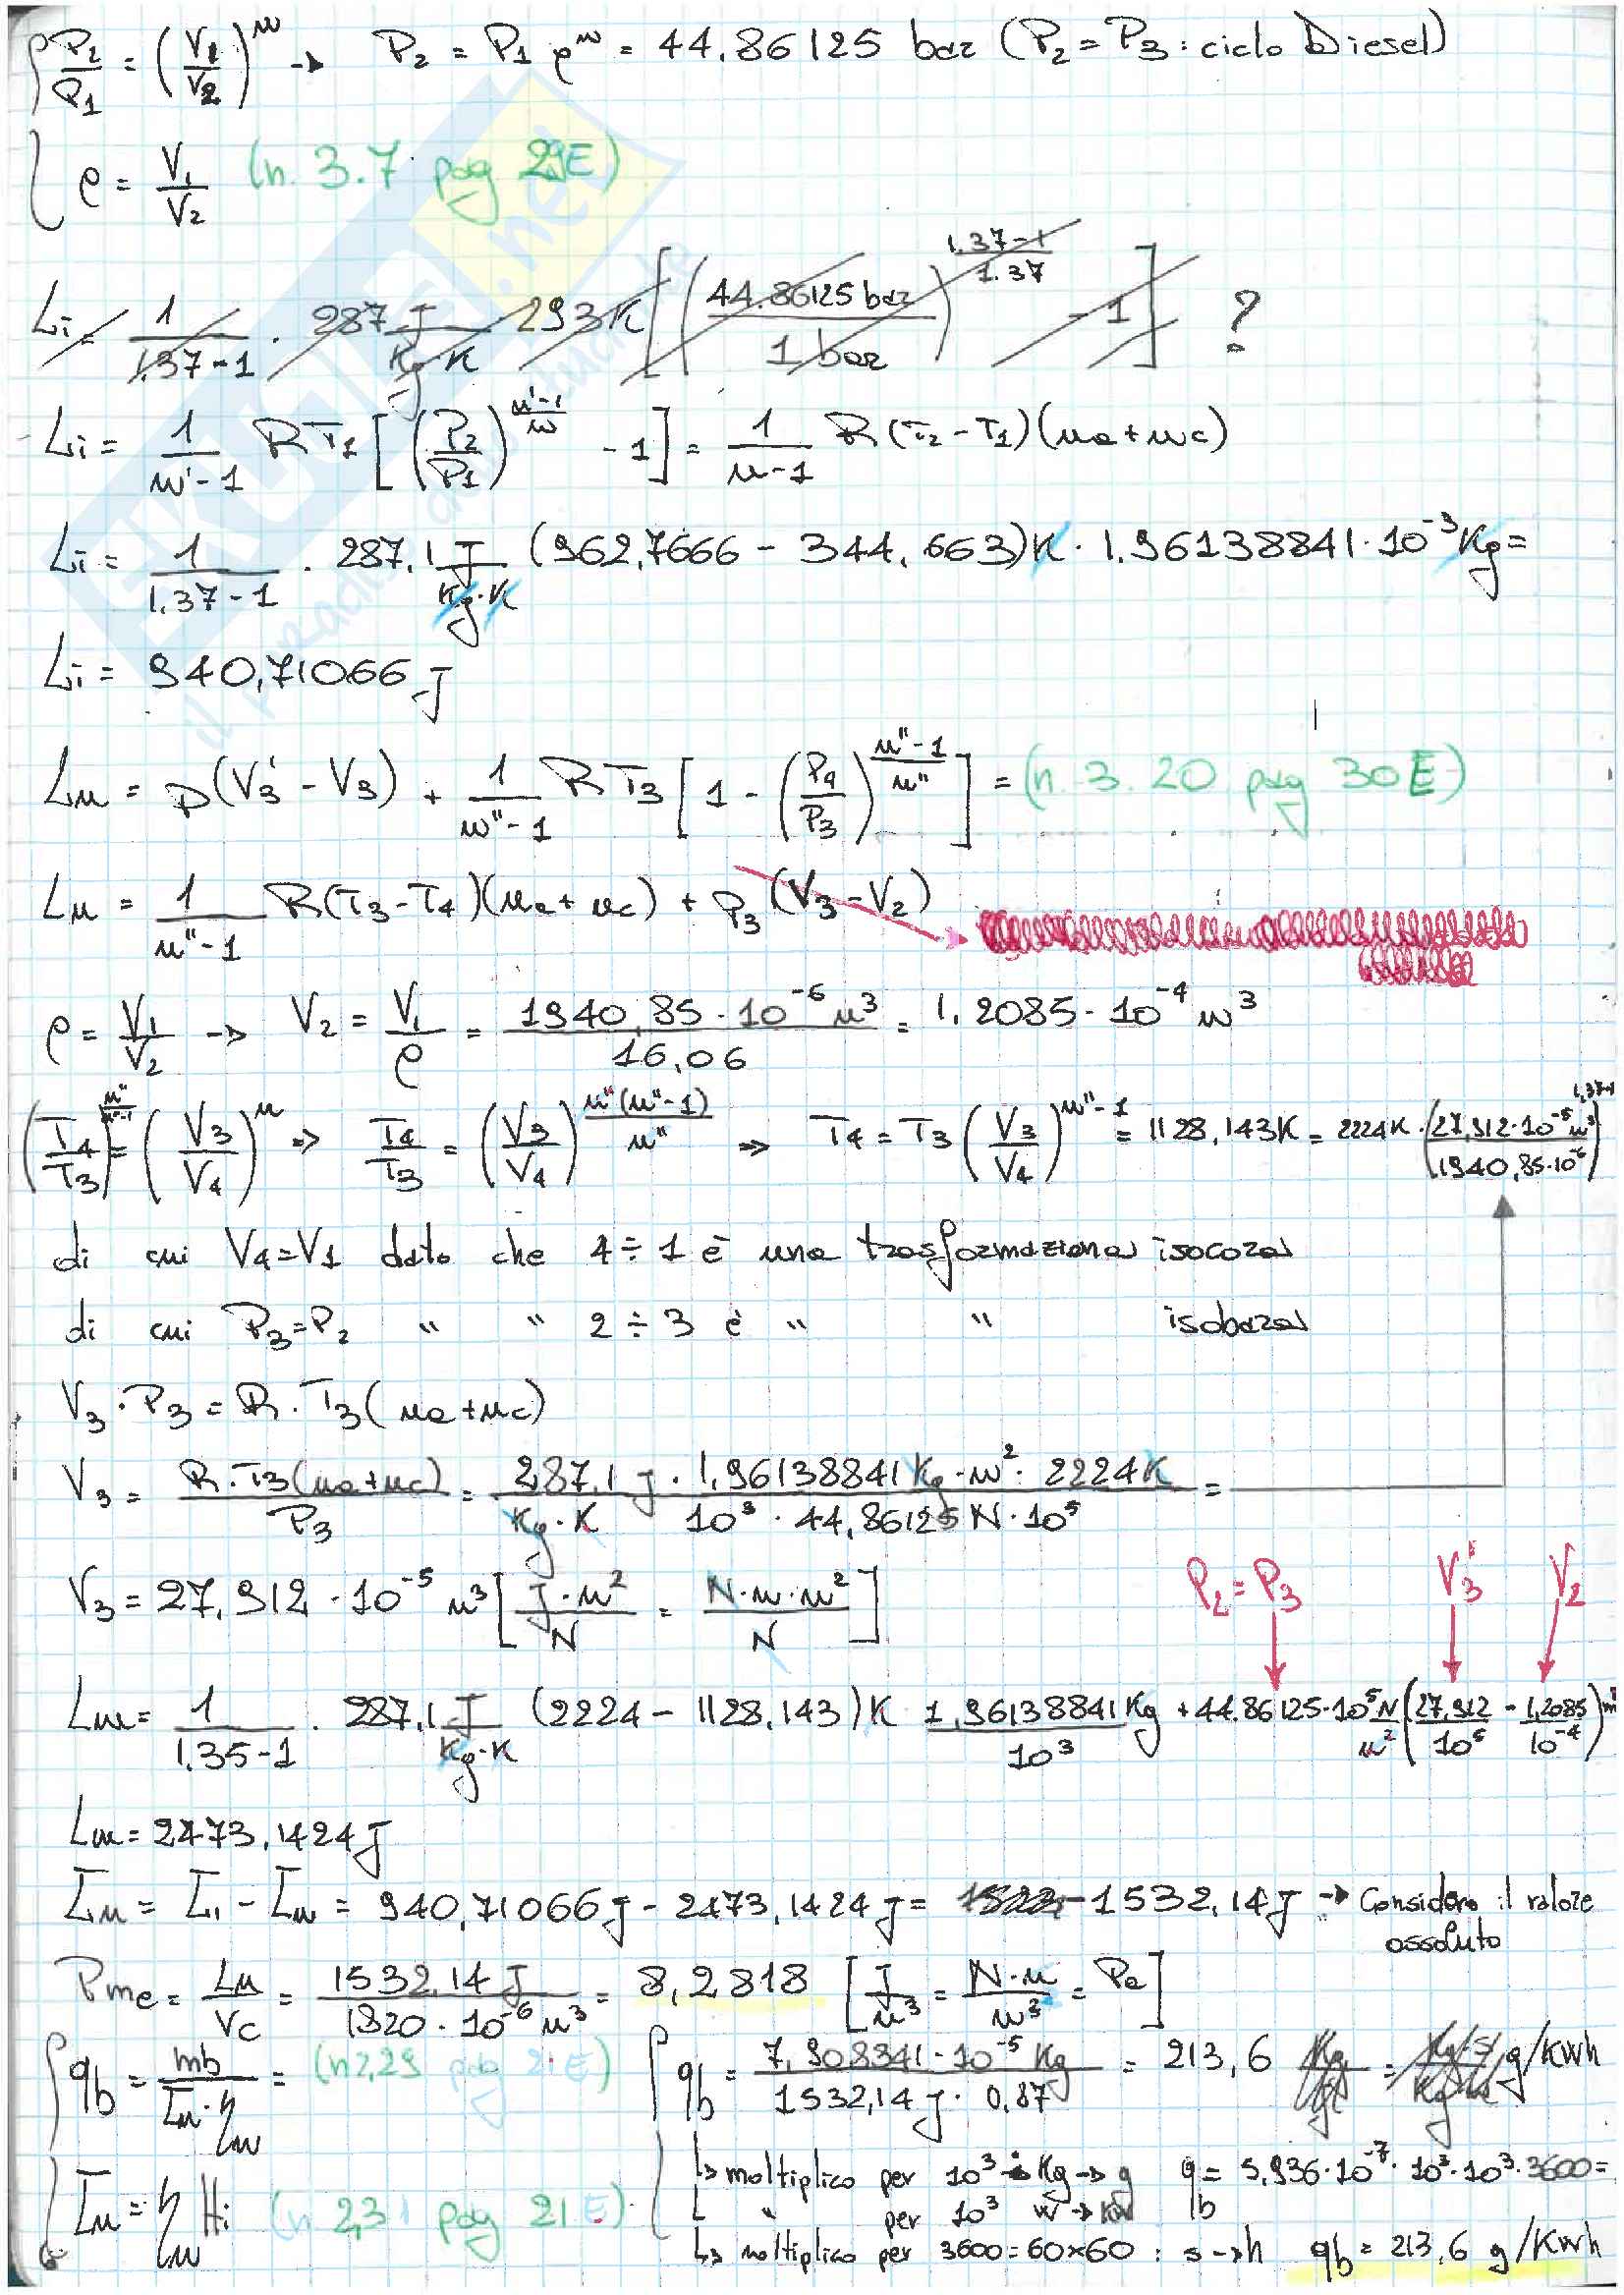 P2/P1 = (V1/V2)^m → P2 = P1 ρ^m = 44.86125 bar (P2 = P3 : ciclo Diesel)
ρ = V1/V2 (n. 3.7 pag 29E)
Li = 1/(1.37-1) · 287 J/(Kg K) 293K [(44.86125 bar / 1 bar)^((1.37-1)/1.37) - 1] ?
Li = 1/(m'-1) RT1 [(P2/P1)^((m'-1)/m') - 1] = 1/(m-1) R(T2-T1)(ma+mc)
Li = 1/(1.37-1) · 287,1 J/(Kg·K) (962,7666 - 344,663)K · 1.96138841·10^-3 Kg =
Li = 940,71066 J
Lm = P(V3' - V3) + 1/(m''-1) RT3 [1 - (P4/P3)^((m''-1)/m'')] = (n. 3.20 pag 30E)
Lm = 1/(m''-1) R(T3-T4)(ma+mc) + P3 (V3-V2)
ρ = V1/V2 → V2 = V1/ρ = 1940,85·10^-6 m³ / 16,06 = 1,2085·10^-4 m³
(T4/T3)^(m''/(m''-1)) = (V3/V4)^m ⇒ T4/T3 = (V3/V4)^(m''(m''-1)/m'') ⇒ T4 = T3 (V3/V4)^(m''-1) = 1128,143K = 2224K · (27,912·10^-5 m³ / 1940,85·10^-6)^(1,37-1)
di cui V4=V1 dato che 4÷1 è una trasformazione isocora
di cui P3=P2 " " 2÷3 è " " isobara
V3·P3 = R·T3(ma+mc)
V3 = R·T3(ma+mc)/P3 = 287,1 J · 1,96138841 Kg·m²· 2224K / (Kg·K 10³ · 44,86125 N·10⁵) =
V3 = 27,912·10^-5 m³ [J·m²/N = N·m·m²/N]
P2=P3 V3' V2
Lm = 1/(1.35-1) · 287,1 J/(Kg·K) (2224 - 1128,143)K 1,96138841 Kg/10³ + 44.86125·10⁵ N/m² (27,912/10⁵ - 1,2085/10^-4) m³
Lm = 2473,1424 J
Lu = Li - Lm = 940,71066 J - 2473,1424 J = -1532,14 J → Considero il valore
assoluto
Pme = Lu/Vc = 1532,14 J / 1820·10^-6 m³ = 8,2818 [J/m³ = N·m/m³ = Pa]
qb = mb/(Lu·ηm) = (n 2,29 pag 21E) qb = 7,908341·10^-5 Kg / (1532,14 J · 0,87) = 213,6 g/KWh
Lu = ηm Hi (n 2,31 pag 21E)
↳ moltiplico per 10³ Kg→g qb = 5,936·10^-7·10³·10³·3600 =
↳ " per 10³ W→KW
↳ moltiplico per 3600=60×60 : s→h qb = 213,6 g/KWh